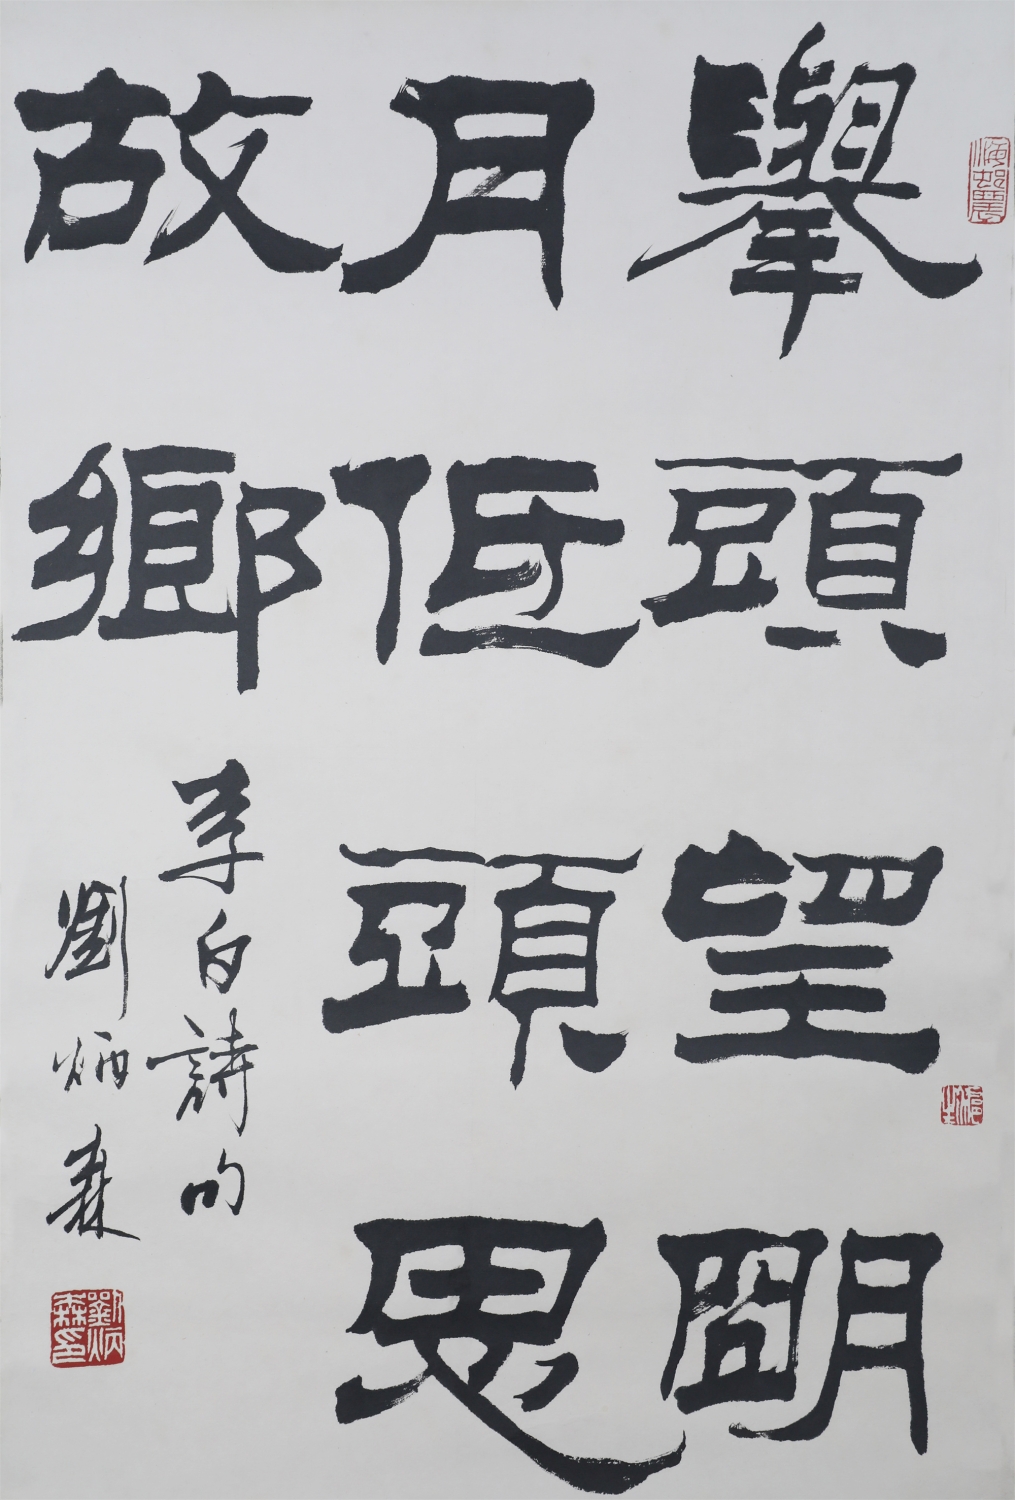 舉頭望朙
月低頭思
故鄉
李白詩句
劉炳森
劉炳森印